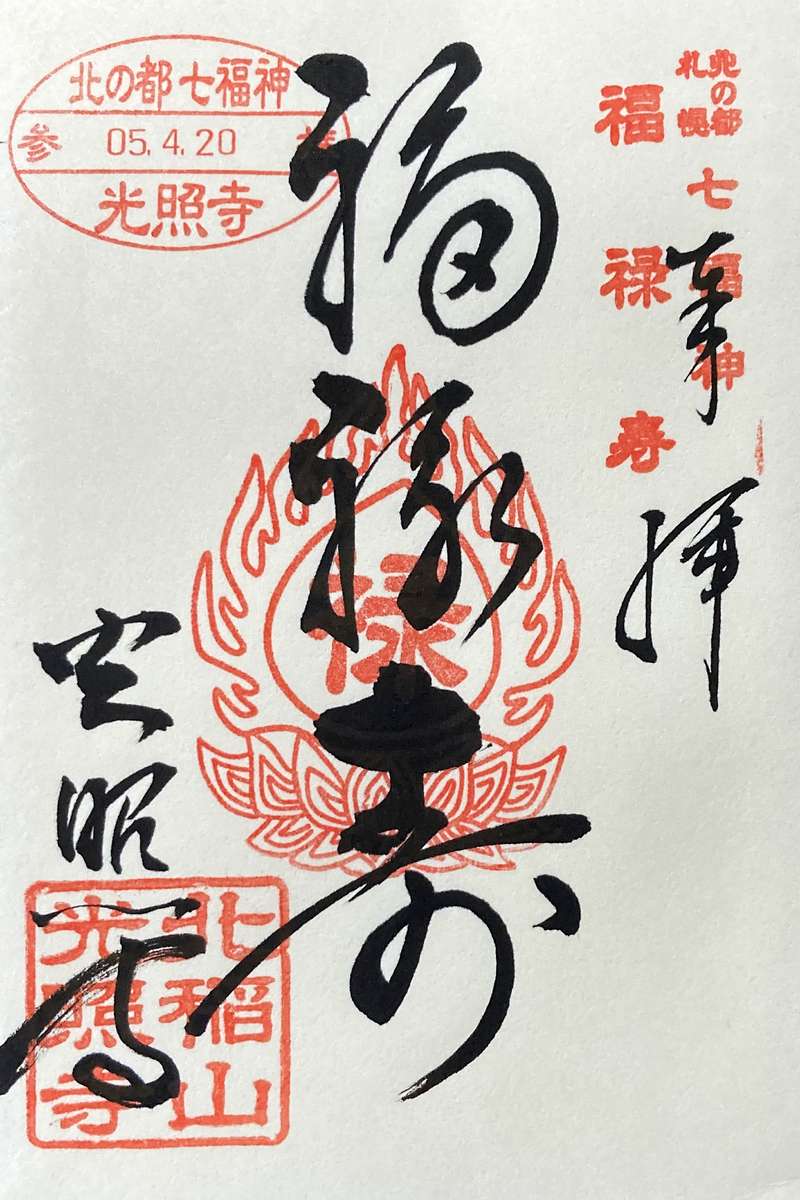 北の都
札幌
七福神
福禄寿
奉拝
福禄寿
禄
北の都七福神
参 05.4.20 拝
光照寺
光照寺
北稲山
光照寺